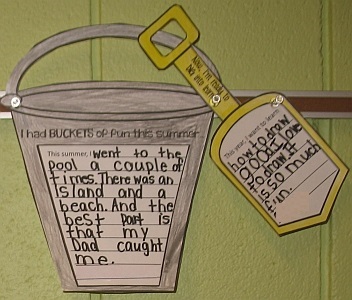 I had BUCKETS of fun this summer
This summer, I went to the
pool a couple of
times. There was an
Island and
beach. And the
best part is
that my
Dad caught
me.
Now, I'm ready to
dig into
This year, I want to learn
how to draw
good. I love
to draw. It
is so much
fun.